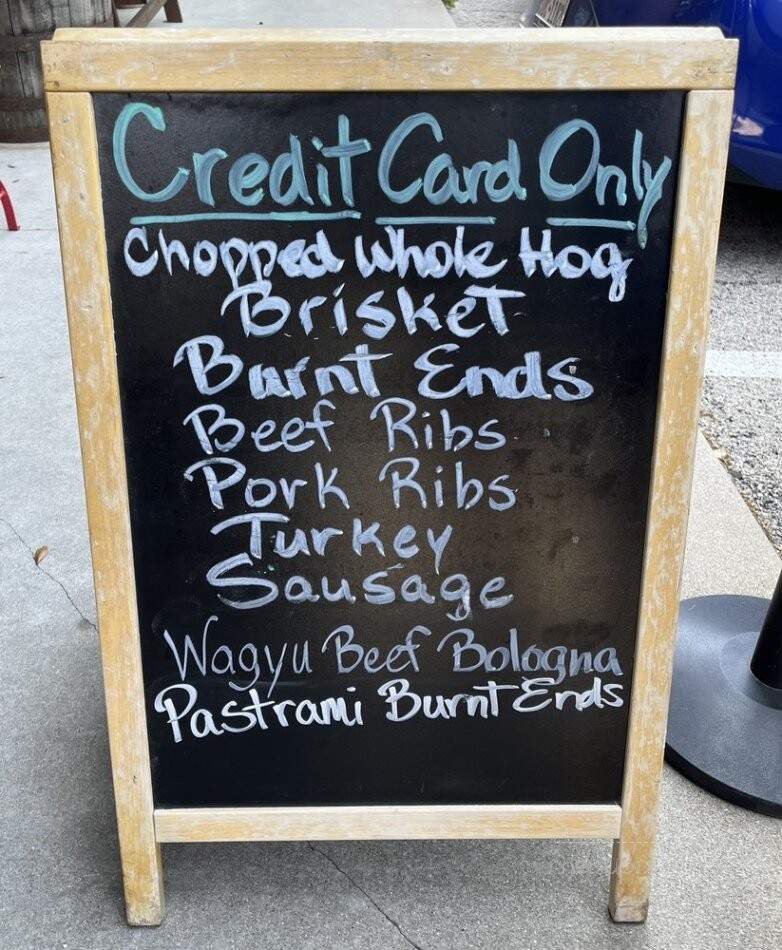 Credit Card Only
Chopped Whole Hog
Brisket
Burnt Ends
Beef Ribs
Pork Ribs
Turkey
Sausage
Wagyu Beef Bologna
Pastrami Burnt Ends